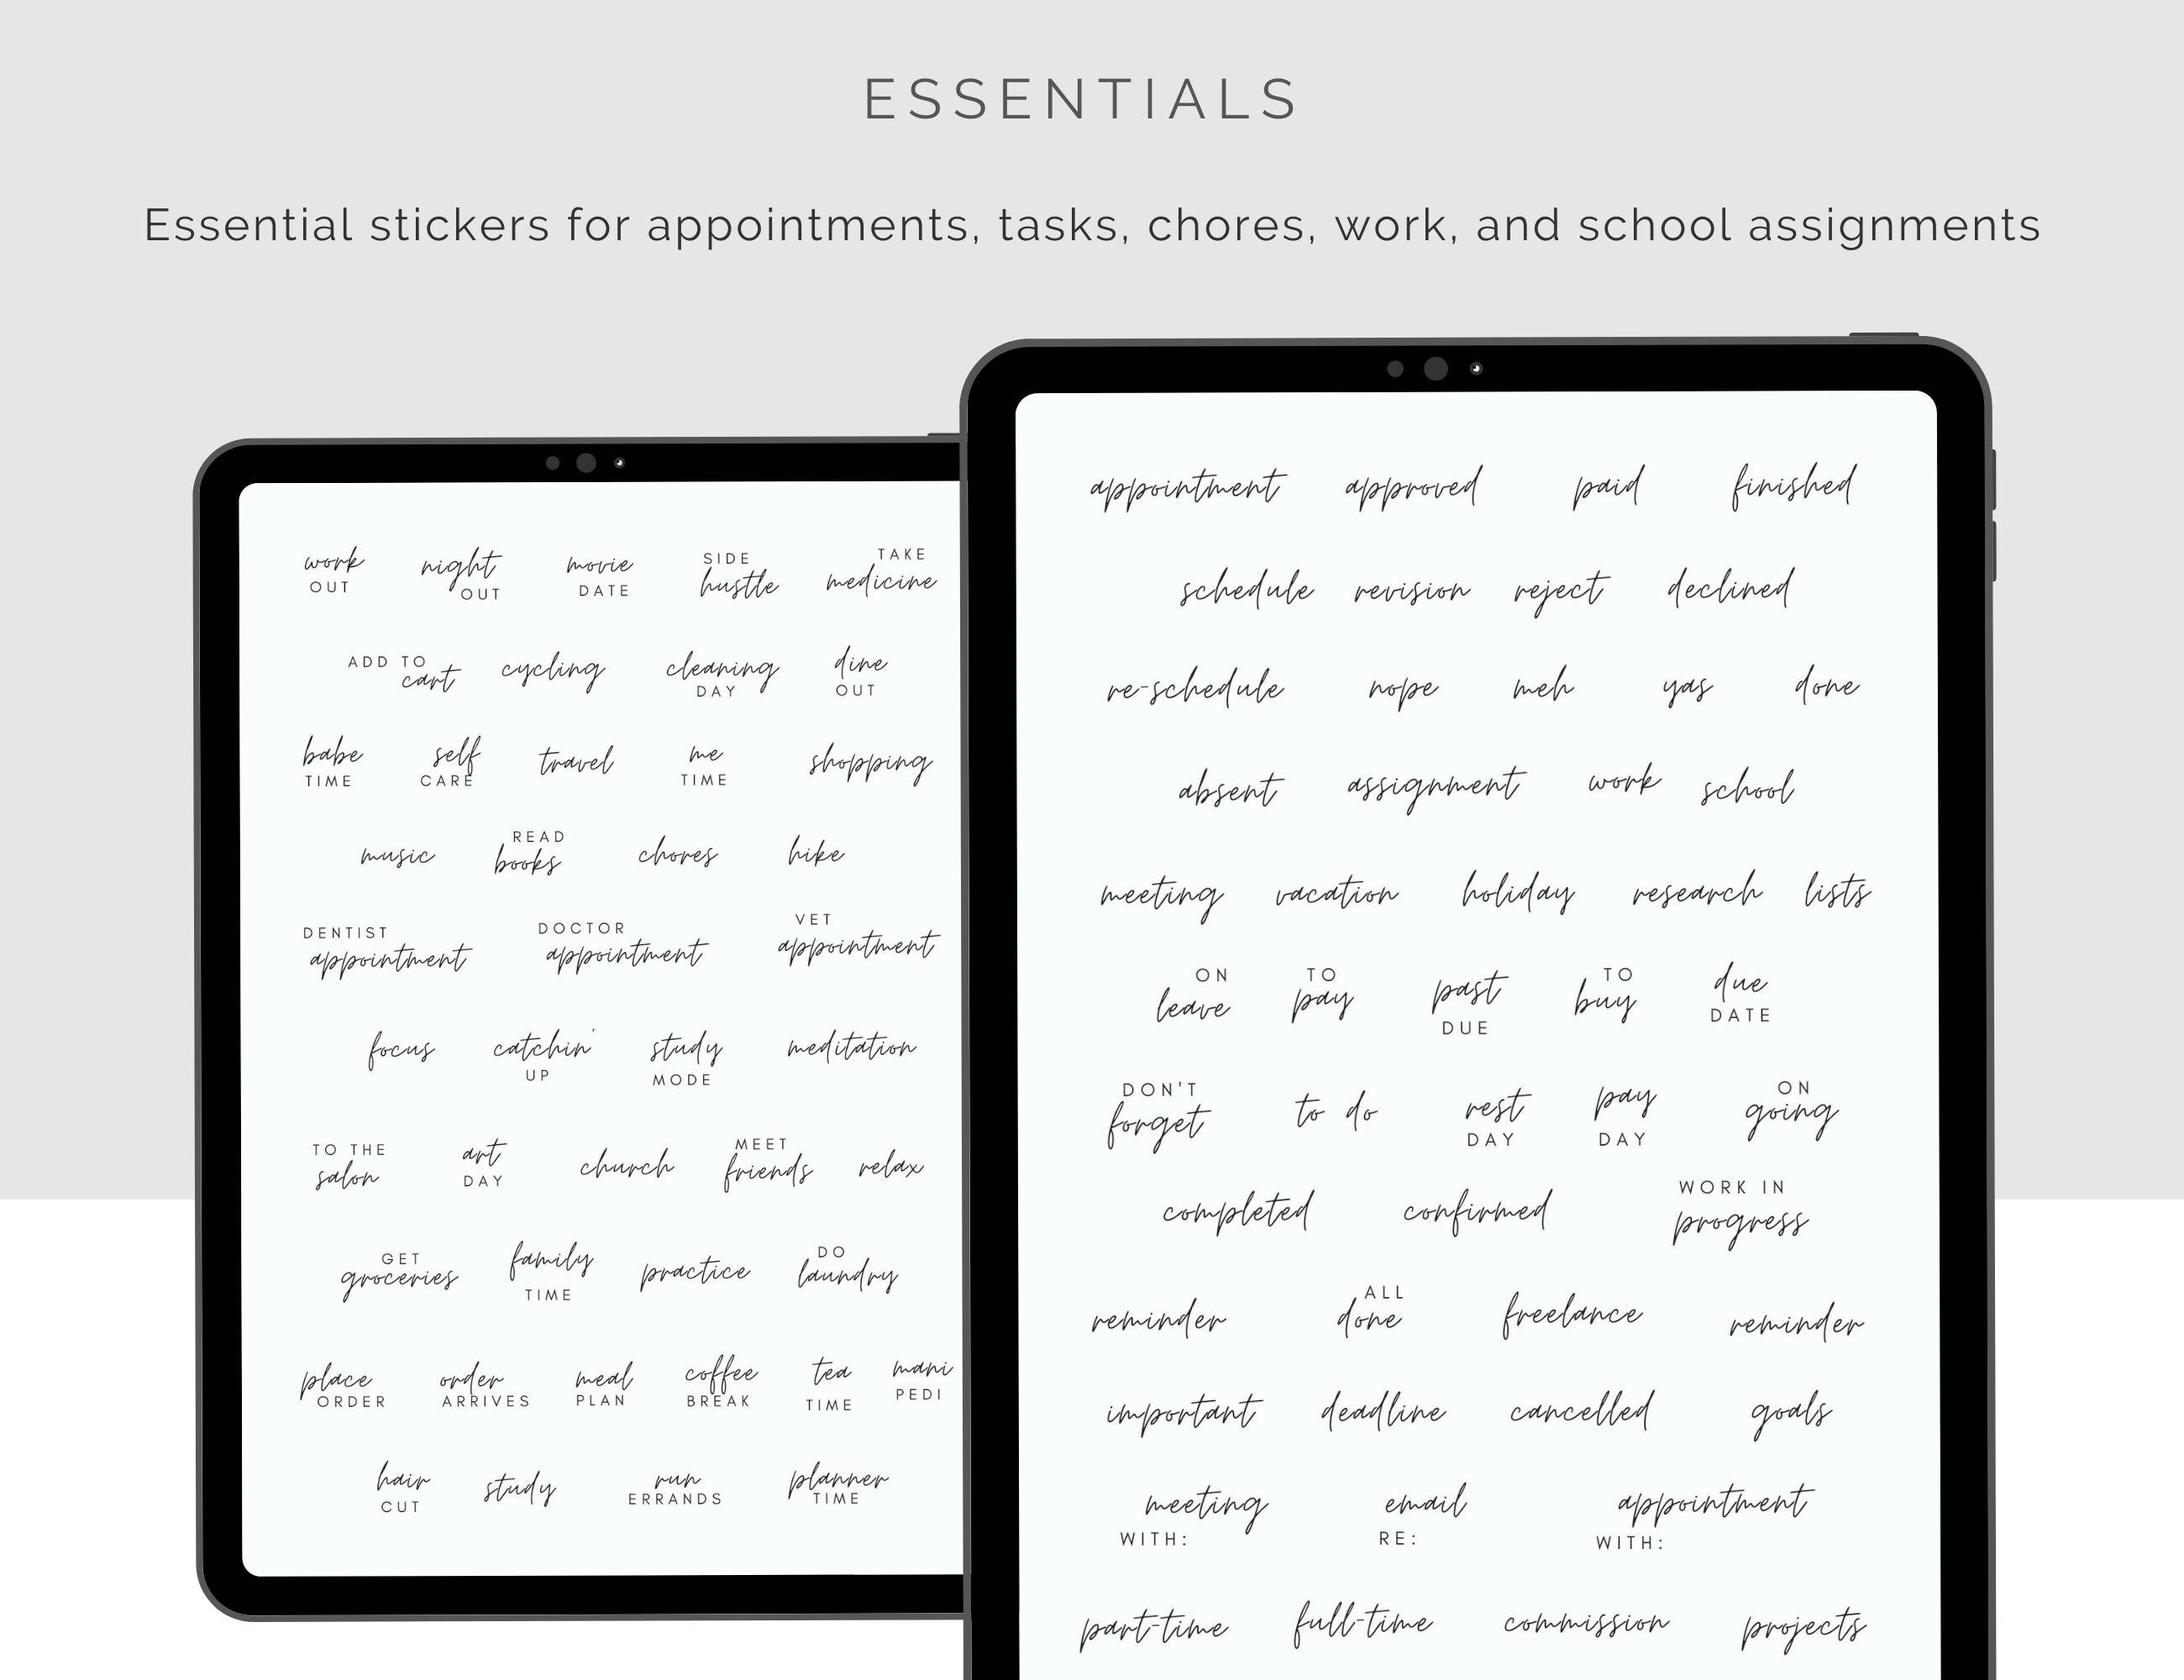 ESSENTIALS
Essential stickers for appointments, tasks, chores, work, and school assignments
work OUT
night OUT
movie DATE
SIDE hustle
TAKE medicine
ADD TO cart
cycling
cleaning DAY
dine OUT
babe TIME
self CARE
travel
me TIME
shopping
music
READ books
chores
hike
DENTIST appointment
DOCTOR appointment
VET appointment
focus
catchin' UP
study MODE
meditation
TO THE salon
art DAY
church
MEET friends
relax
GET groceries
family TIME
practice
DO laundry
place ORDER
order ARRIVES
meal PLAN
coffee BREAK
tea TIME
mani PEDI
hair CUT
study
run ERRANDS
planner TIME
appointment approved paid finished
schedule revision reject declined
re-schedule nope meh yas done
absent assignment work school
meeting vacation holiday research lists
ON leave
TO pay
past DUE
TO buy
due DATE
DON'T forget
to do
rest DAY
pay DAY
ON going
completed
confirmed
WORK IN progress
reminder
ALL done
freelance
reminder
important deadline cancelled goals
meeting WITH:
email RE:
appointment WITH:
part-time full-time commission projects